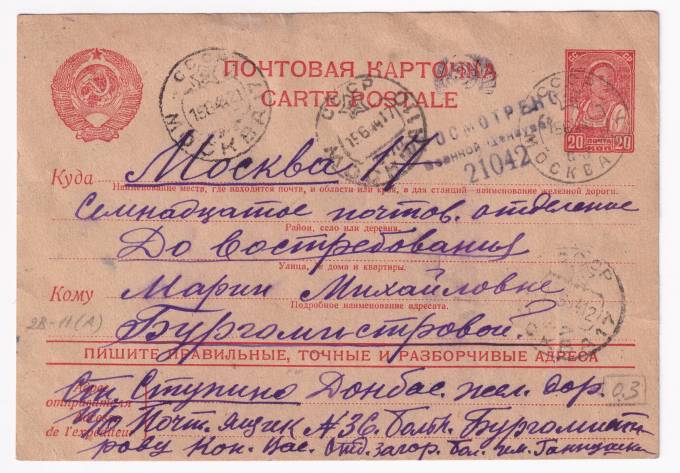 ПОЧТОВАЯ КАРТОЧКА
CARTE POSTALE
СССР
МОСКВА
ОСМОТРЕНО
Военной Цензурой
21042
20 ПОЧТА 20
КОП.
Москва 17
Куда
Наименование места, где находится почта, и области или края, а для станций—наименование железной дороги.
Семнадцатое почтов. отделение
Район, село или деревня.
До востребования
Улица, № дома и квартиры.
Кому Марии Михайловне
Подробное наименование адресата.
Бургомистровой
2В-11(А)
ПИШИТЕ ПРАВИЛЬНЫЕ, ТОЧНЫЕ И РАЗБОРЧИВЫЕ АДРЕСА
Адрес отправителя
Ст. Ступино Донбас. жел. дор.
0,3
de l'expéditeur
П/о Почт. ящик № 36. Больн. Бургомист
рову Кон. Вас. Отд. загор. бол. им.